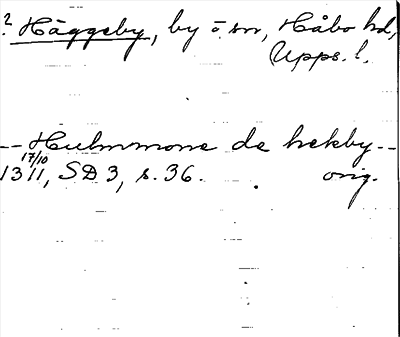 ? Häggeby, by o. sn, Håbo hd,
Upps. l.
-- Hulmmone de hekby --
17/10
1311, SD 3, s. 36. orig.